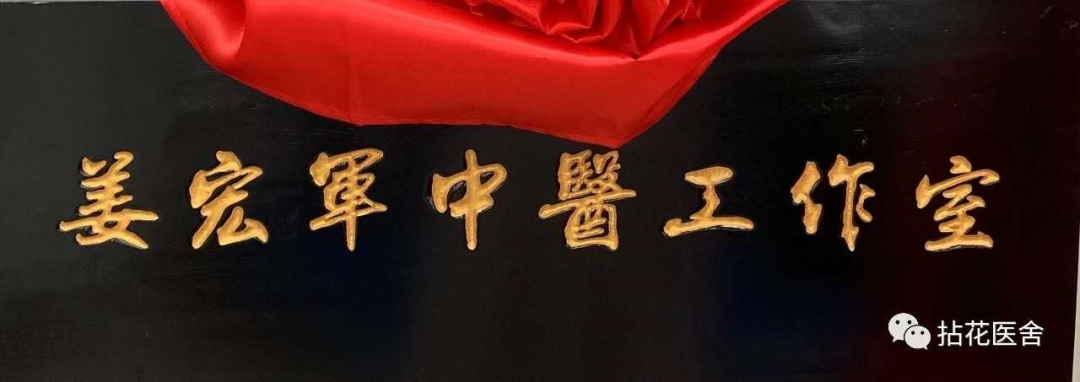 姜宏軍中醫工作室
拈花医舍